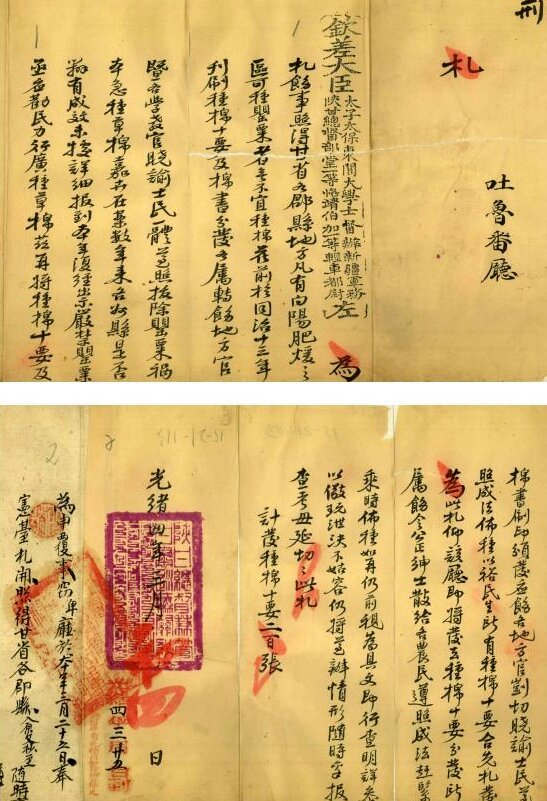 刑
札
吐魯番廳
欽差大臣
太子太保東閣大學士督辦新疆軍務
陝甘總督部堂一等恪靖伯加一等輕車都尉
左
為
札飭事照得甘省各郡縣地方凡有向陽肥煖之
區可種罌粟者無不宜種棉花前於同治十三年
刊刷種棉十要及棉書分發各屬轉飭地方官
暨各學教官曉諭士民一體遵照拔除罌粟禍
本急種草棉嘉卉在案數年來各州縣是否
著有成效未據詳細報到本年復經嚴禁罌粟
亟應勸民力行廣種草棉茲再將種棉十要及
棉書刷印頒發應飭各地方官剴切曉諭士民
照成法佈種以裕民生所有種棉十要合先札發
為此札仰該廳即將發去種棉十要分發所
屬飭令公正紳士散給各農民遵照成法趕緊
乘時佈種如再仍前視為具文即行查明詳參
以儆玩泄決不姑容仍將遵辦情形隨時稟報
查考毋延切切此札
計發種棉十要二百張
光緒四年二月十四日
四三廿五
為申覆事窃卑廳於本年三月二十五日奉
憲臺札開照得甘省各郡縣
隨時